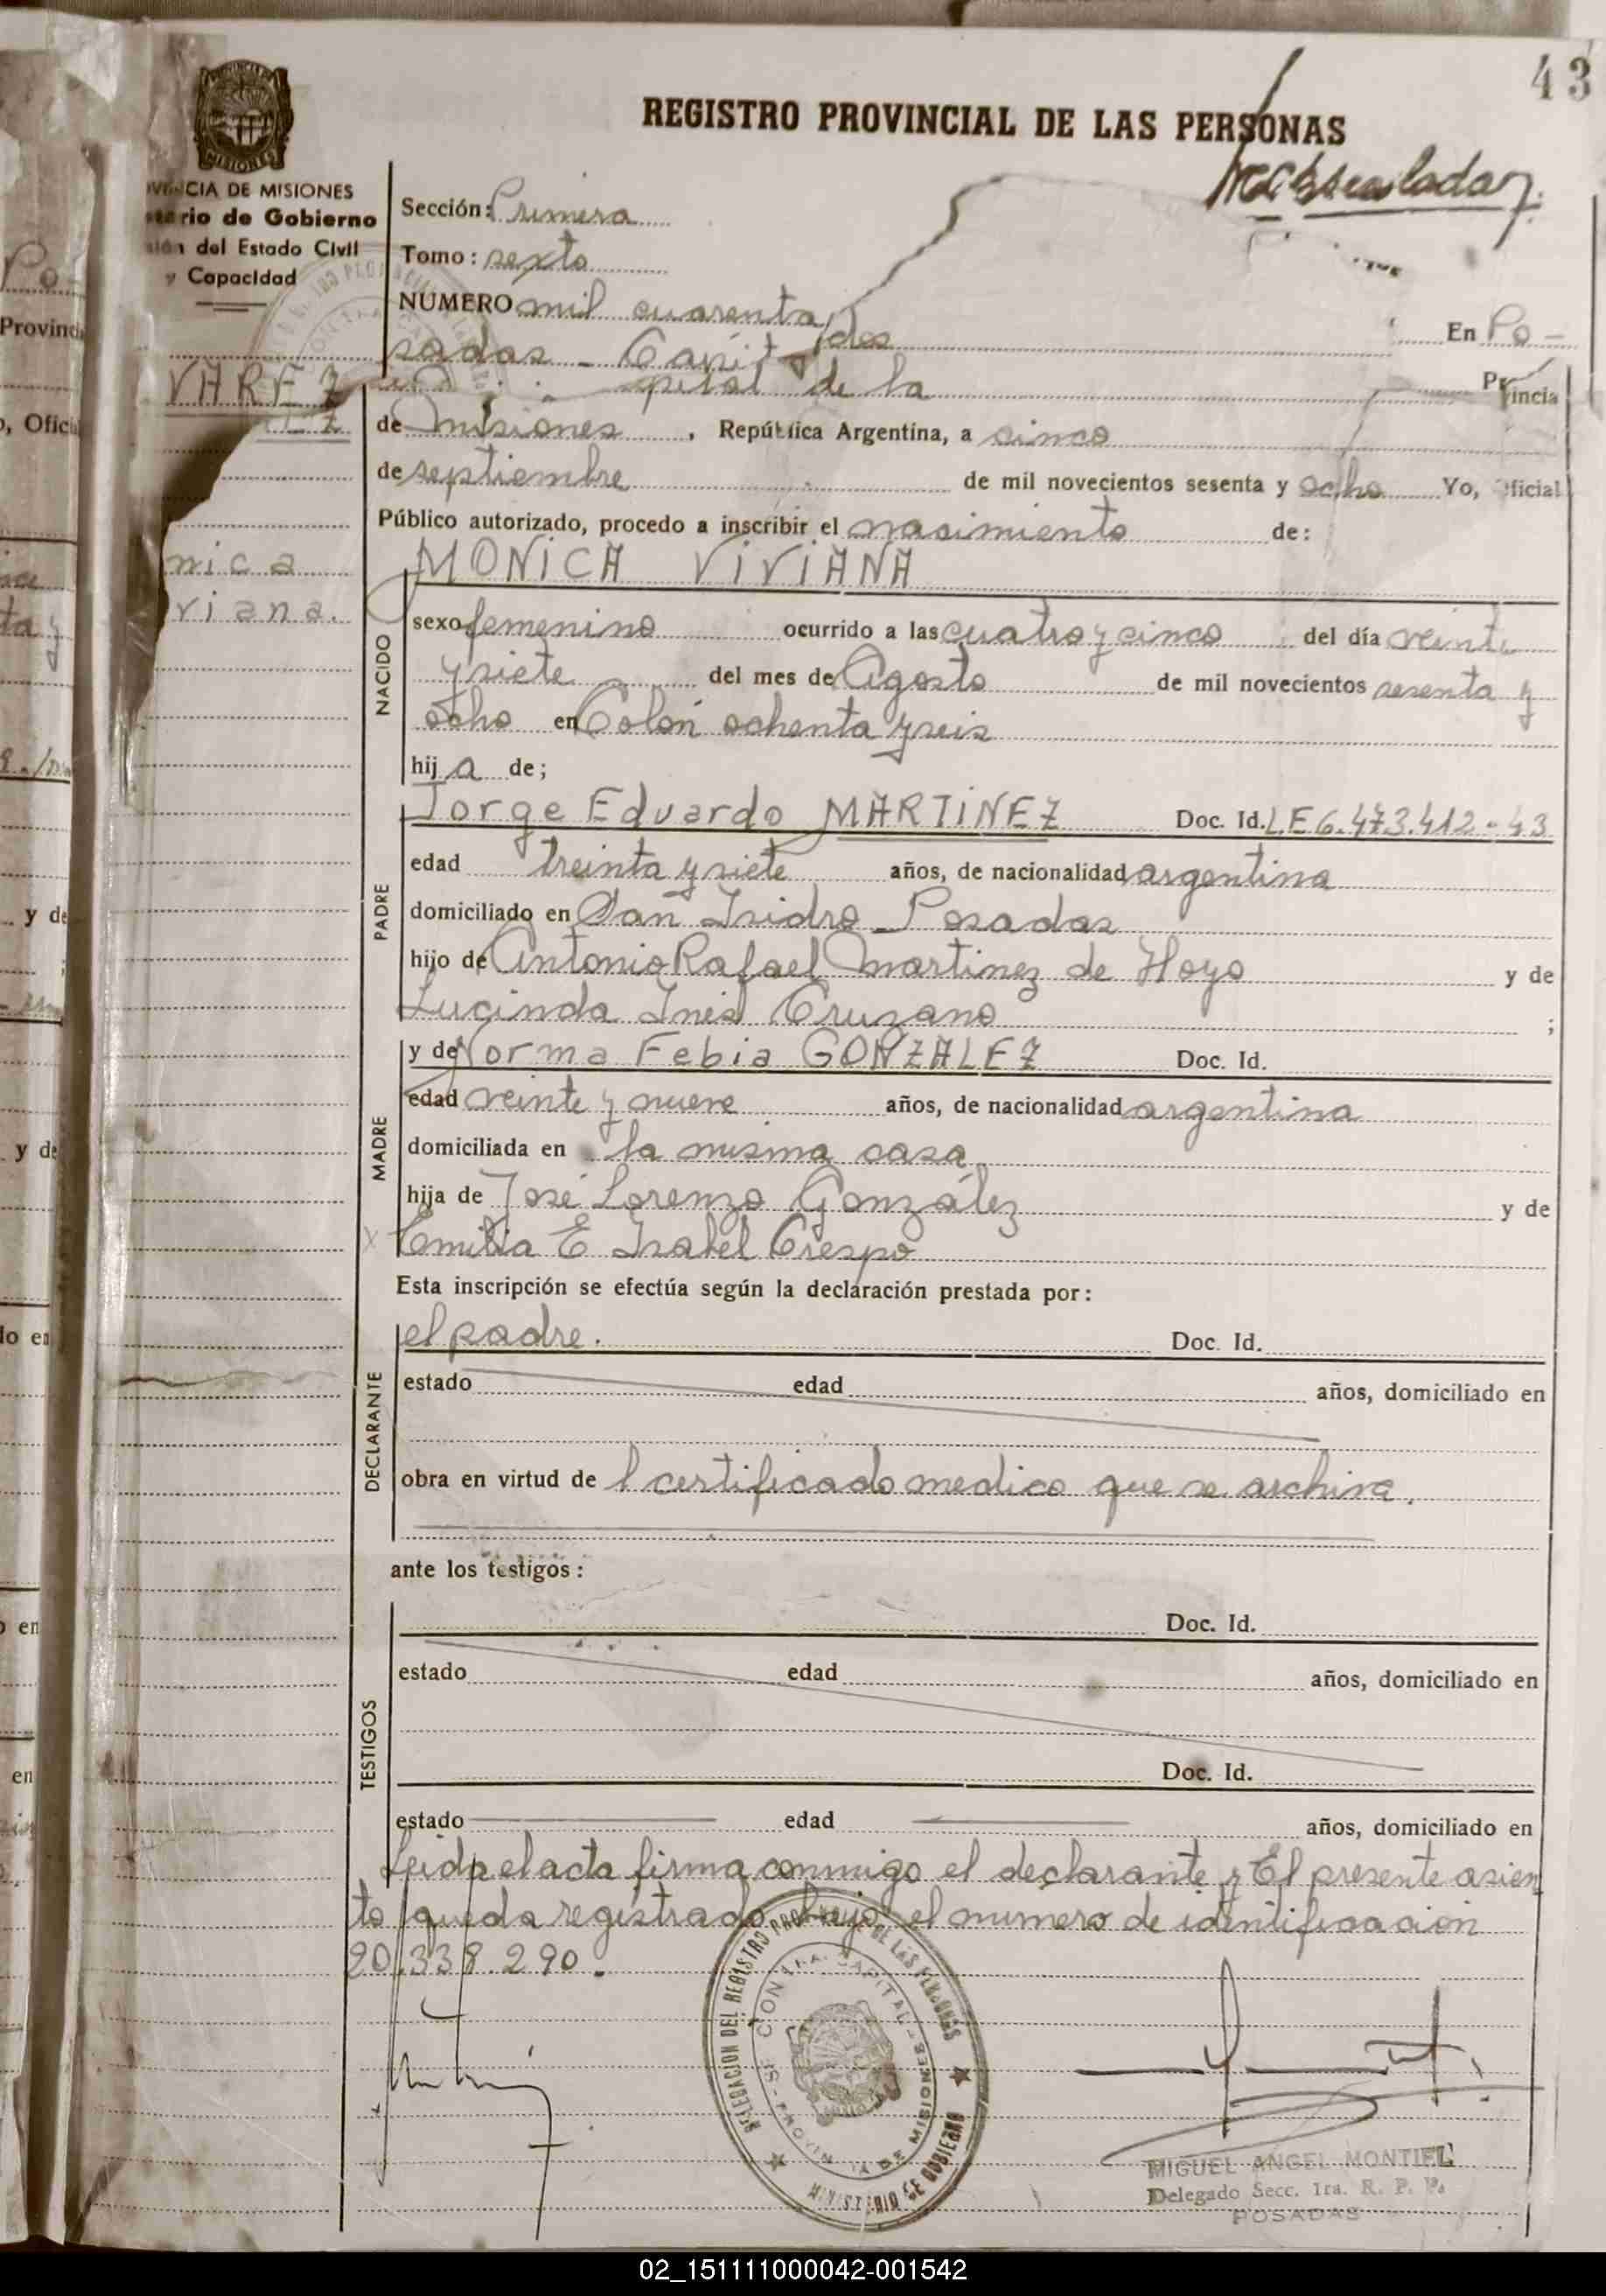 43
REGISTRO PROVINCIAL DE LAS PERSONAS
PROVINCIA DE
MISIONES
VINCIA DE MISIONES
terio de Gobierno
del Estado Civil
y Capacidad
Sección: Primera
Tomo: sexto
NUMERO mil cuarenta y dos
En Po-
sadas - Capital de la Provincia
VAREZ
EZ
de Misiones, República Argentina, a cinco
de septiembre de mil novecientos sesenta y ocho Yo, Oficial
Público autorizado, procedo a inscribir el nacimiento de:
nica
viana.
MONICA VIVIANA
NACIDO
sexo femenino ocurrido a las cuatro y cinco del día veinte
y siete del mes de Agosto de mil novecientos sesenta y
ocho en Colón ochenta y seis
hija de;
PADRE
Jorge Eduardo MARTINEZ Doc. Id. L E 6.473.412-43
edad treinta y siete años, de nacionalidad argentina
domiciliado en San Isidro - Posadas
hijo de Antonio Rafael Martinez de Hoyo y de
Lucinda Inés Cruzano ;
MADRE
y de Norma Febia GONZALEZ Doc. Id.
edad veinte y nueve años, de nacionalidad argentina
domiciliada en la misma casa
hija de José Lorenzo González y de
Emilia E Isabel Crespo
Esta inscripción se efectúa según la declaración prestada por:
DECLARANTE
el padre. Doc. Id.
estado edad años, domiciliado en
obra en virtud de l certificado medico que se archiva.
ante los testigos:
TESTIGOS
Doc. Id.
estado edad años, domiciliado en
Doc. Id.
estado edad años, domiciliado en
Leida el acta firma conmigo el declarante y El presente asien
to queda registrado bajo el numero de identificacion
20.338.290.
DELEGACION DEL REGISTRO PROVINCIAL DE LAS PERSONAS
CAPITAL
MISIONES
MINISTERIO DE GOBIERNO
MIGUEL ANGEL MONTIEL
Delegado Secc. 1ra. R. P. P.
POSADAS
Po-
Provinci
o, Ofici
y de
y de
lo en
en
en
02_151111000042-001542